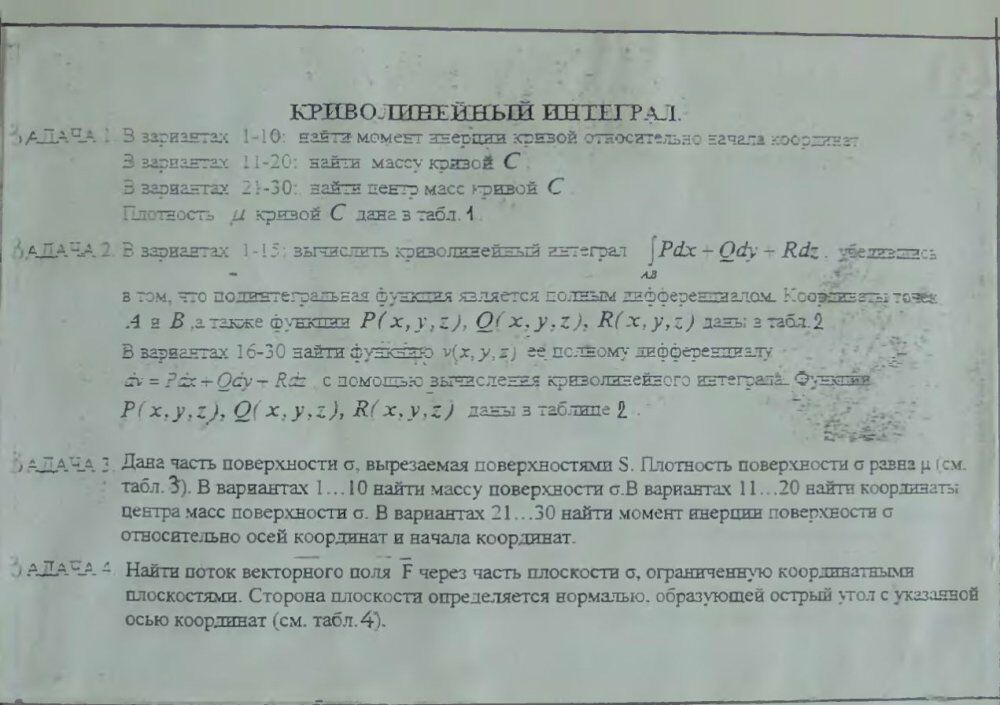 КРИВОЛИНЕЙНЫЙ ИНТЕГРАЛ.
ЗАДАЧА 1. В вариантах 1-10: найти момент инерции кривой относительно начала координат
В вариантах 11-20: найти массу кривой C.
В вариантах 21-30: найти центр масс кривой C.
Плотность μ кривой C дана в табл. 1.
ЗАДАЧА 2. В вариантах 1-15: вычислить криволинейный интеграл ∫Pdx + Qdy + Rdz, убедившись
AB
в том, что подинтегральная функция является полным дифференциалом. Координаты точек
A и B, а также функции P(x,y,z), Q(x,y,z), R(x,y,z) даны в табл.2
В вариантах 16-30 найти функцию v(x,y,z) ее полному дифференциалу
dv = Pdx + Qdy + Rdz с помощью вычисления криволинейного интеграла. Функции
P(x,y,z), Q(x,y,z), R(x,y,z) даны в таблице 2.
ЗАДАЧА 3. Дана часть поверхности σ, вырезаемая поверхностями S. Плотность поверхности σ равна μ (см.
табл. 3). В вариантах 1...10 найти массу поверхности σ.В вариантах 11...20 найти координаты
центра масс поверхности σ. В вариантах 21...30 найти момент инерции поверхности σ
относительно осей координат и начала координат.
ЗАДАЧА 4. Найти поток векторного поля F̅ через часть плоскости σ, ограниченную координатными
плоскостями. Сторона плоскости определяется нормалью, образующей острый угол с указанной
осью координат (см. табл.4).